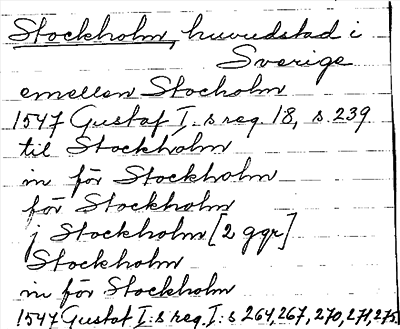 Stockholm, huvudstad i
Sverige
emellen Stocholm
1547 Gustaf I:s reg 18, s 239
til Stockholm
in för Stockholm
för Stockholm
j Stockholm [2 ggr]
Stockholm
in för Stockholm
1547 Gustaf I:s reg. I: s 264, 267, 270, 271, 275